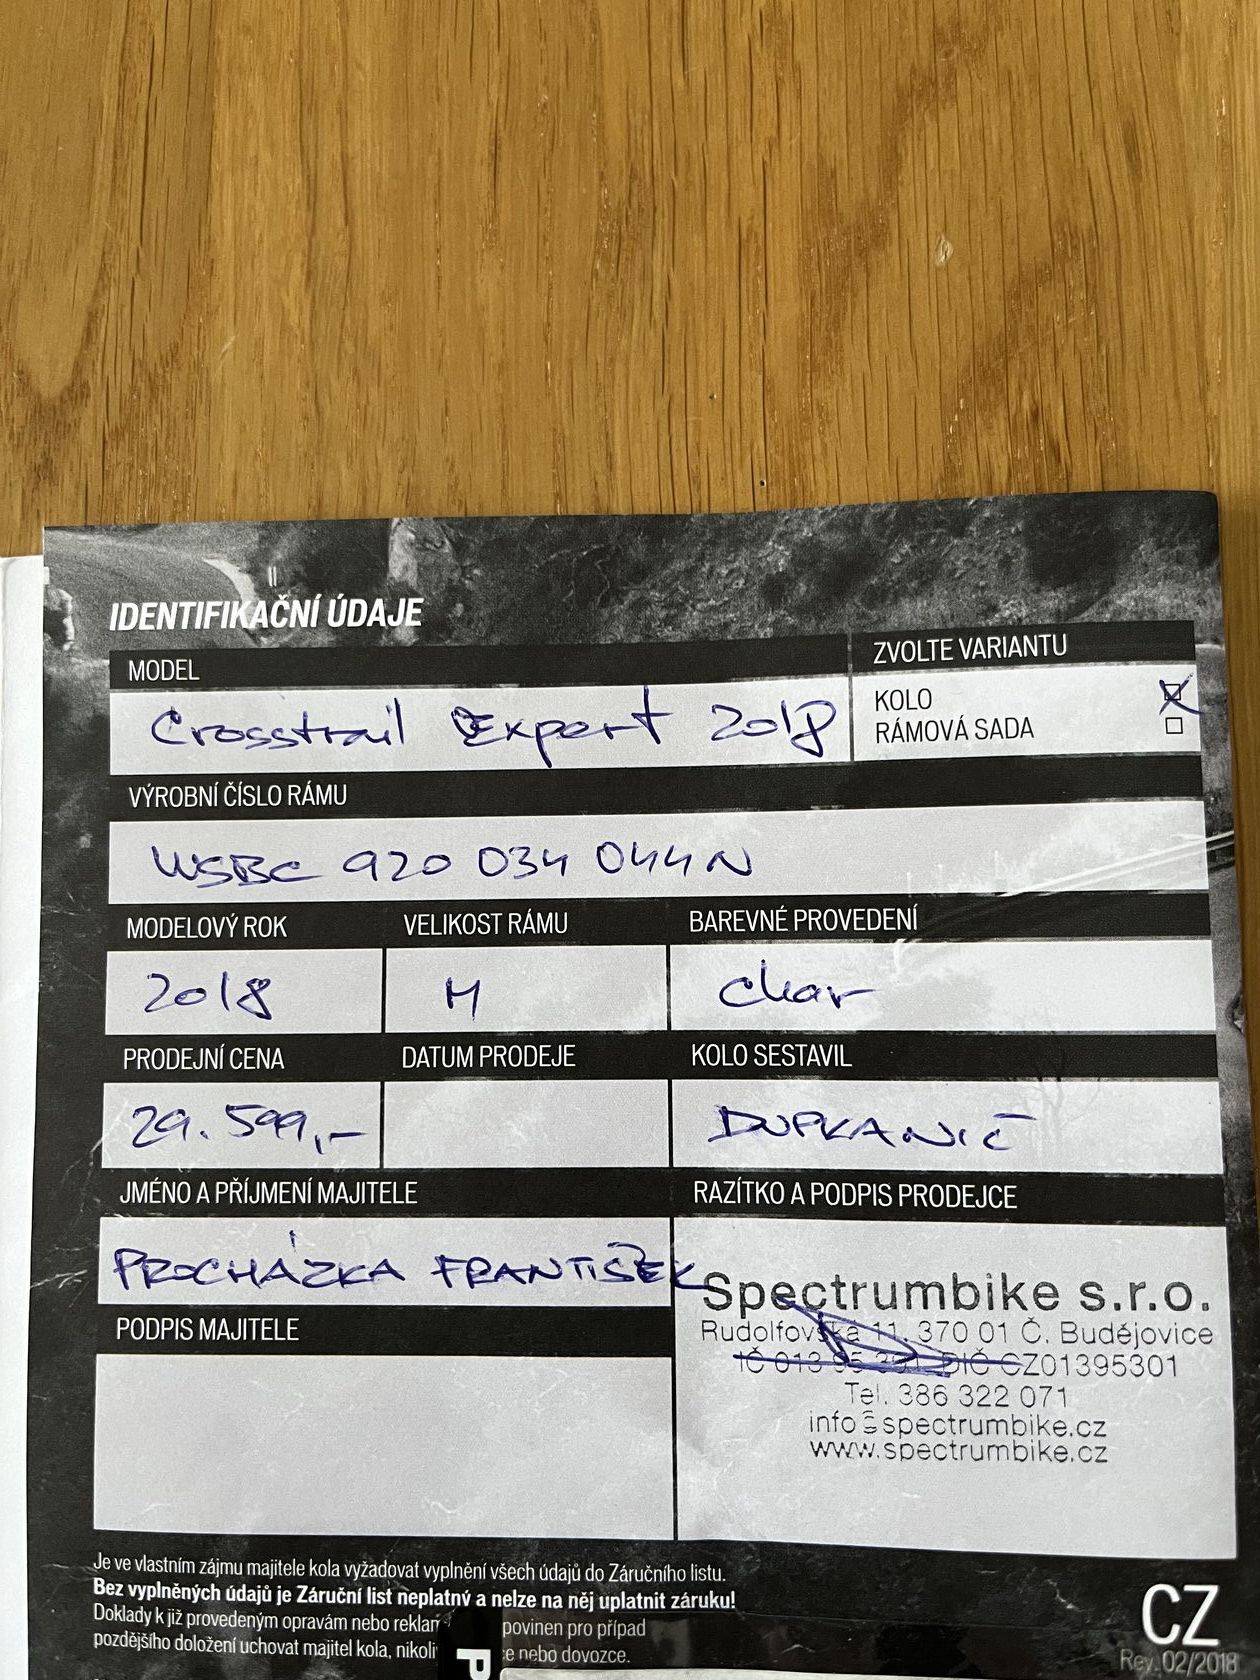 IDENTIFIKAČNÍ ÚDAJE
MODEL
ZVOLTE VARIANTU
Crosstrail Expert 2018
KOLO
RÁMOVÁ SADA
VÝROBNÍ ČÍSLO RÁMU
WSBC 920 034 044N
MODELOVÝ ROK
VELIKOST RÁMU
BAREVNÉ PROVEDENÍ
2018
M
char
PRODEJNÍ CENA
DATUM PRODEJE
KOLO SESTAVIL
29.599,-
DUPKANIČ
JMÉNO A PŘÍJMENÍ MAJITELE
RAZÍTKO A PODPIS PRODEJCE
PROCHÁZKA FRANTIŠEK
Spectrumbike s.r.o.
Rudolfovská 11, 370 01 Č. Budějovice
IČ 013 95 301, DIČ CZ01395301
Tel. 386 322 071
info@spectrumbike.cz
www.spectrumbike.cz
PODPIS MAJITELE
Je ve vlastním zájmu majitele kola vyžadovat vyplnění všech údajů do Záručního listu.
Bez vyplněných údajů je Záruční list neplatný a nelze na něj uplatnit záruku!
Doklady k již provedeným opravám nebo reklam povinen pro případ
pozdějšího doložení uchovat majitel kola, nikoli ce nebo dovozce.
CZ
Rev. 02/2018
P